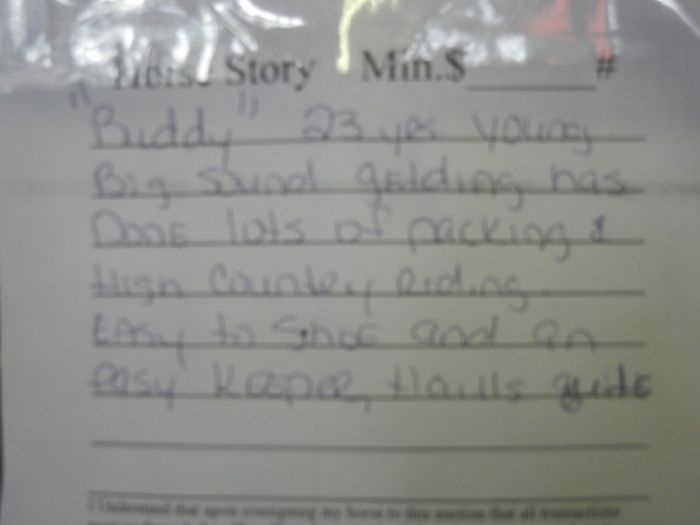 Horse Story Min.$______#
"Buddy" 23 yrs young
Big sound gelding has
DONE lots of packing &
High Country Riding.
EASy to ShoE and an
easy KEEPER, Haulls quitE
I Understand that upon consigning my horse to this auction that all transactions